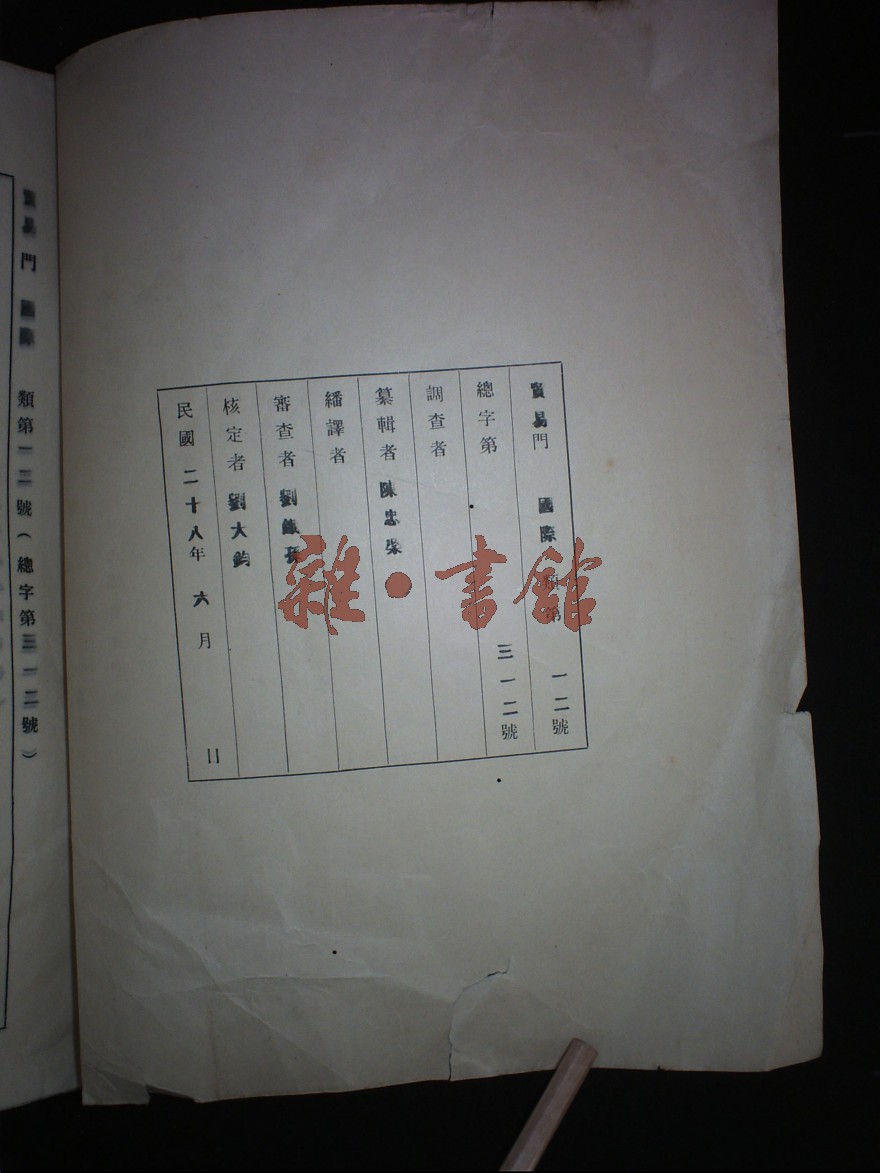 貿易門 國際類第一二號
總字第三一二號
調查者
纂輯者 陳忠榮
繙譯者
審查者 劉鐵孫
核定者 劉大鈞
民國二十八年六月 日
貿易門 國際 類第一二號（總字第三一二號）
雜·書館